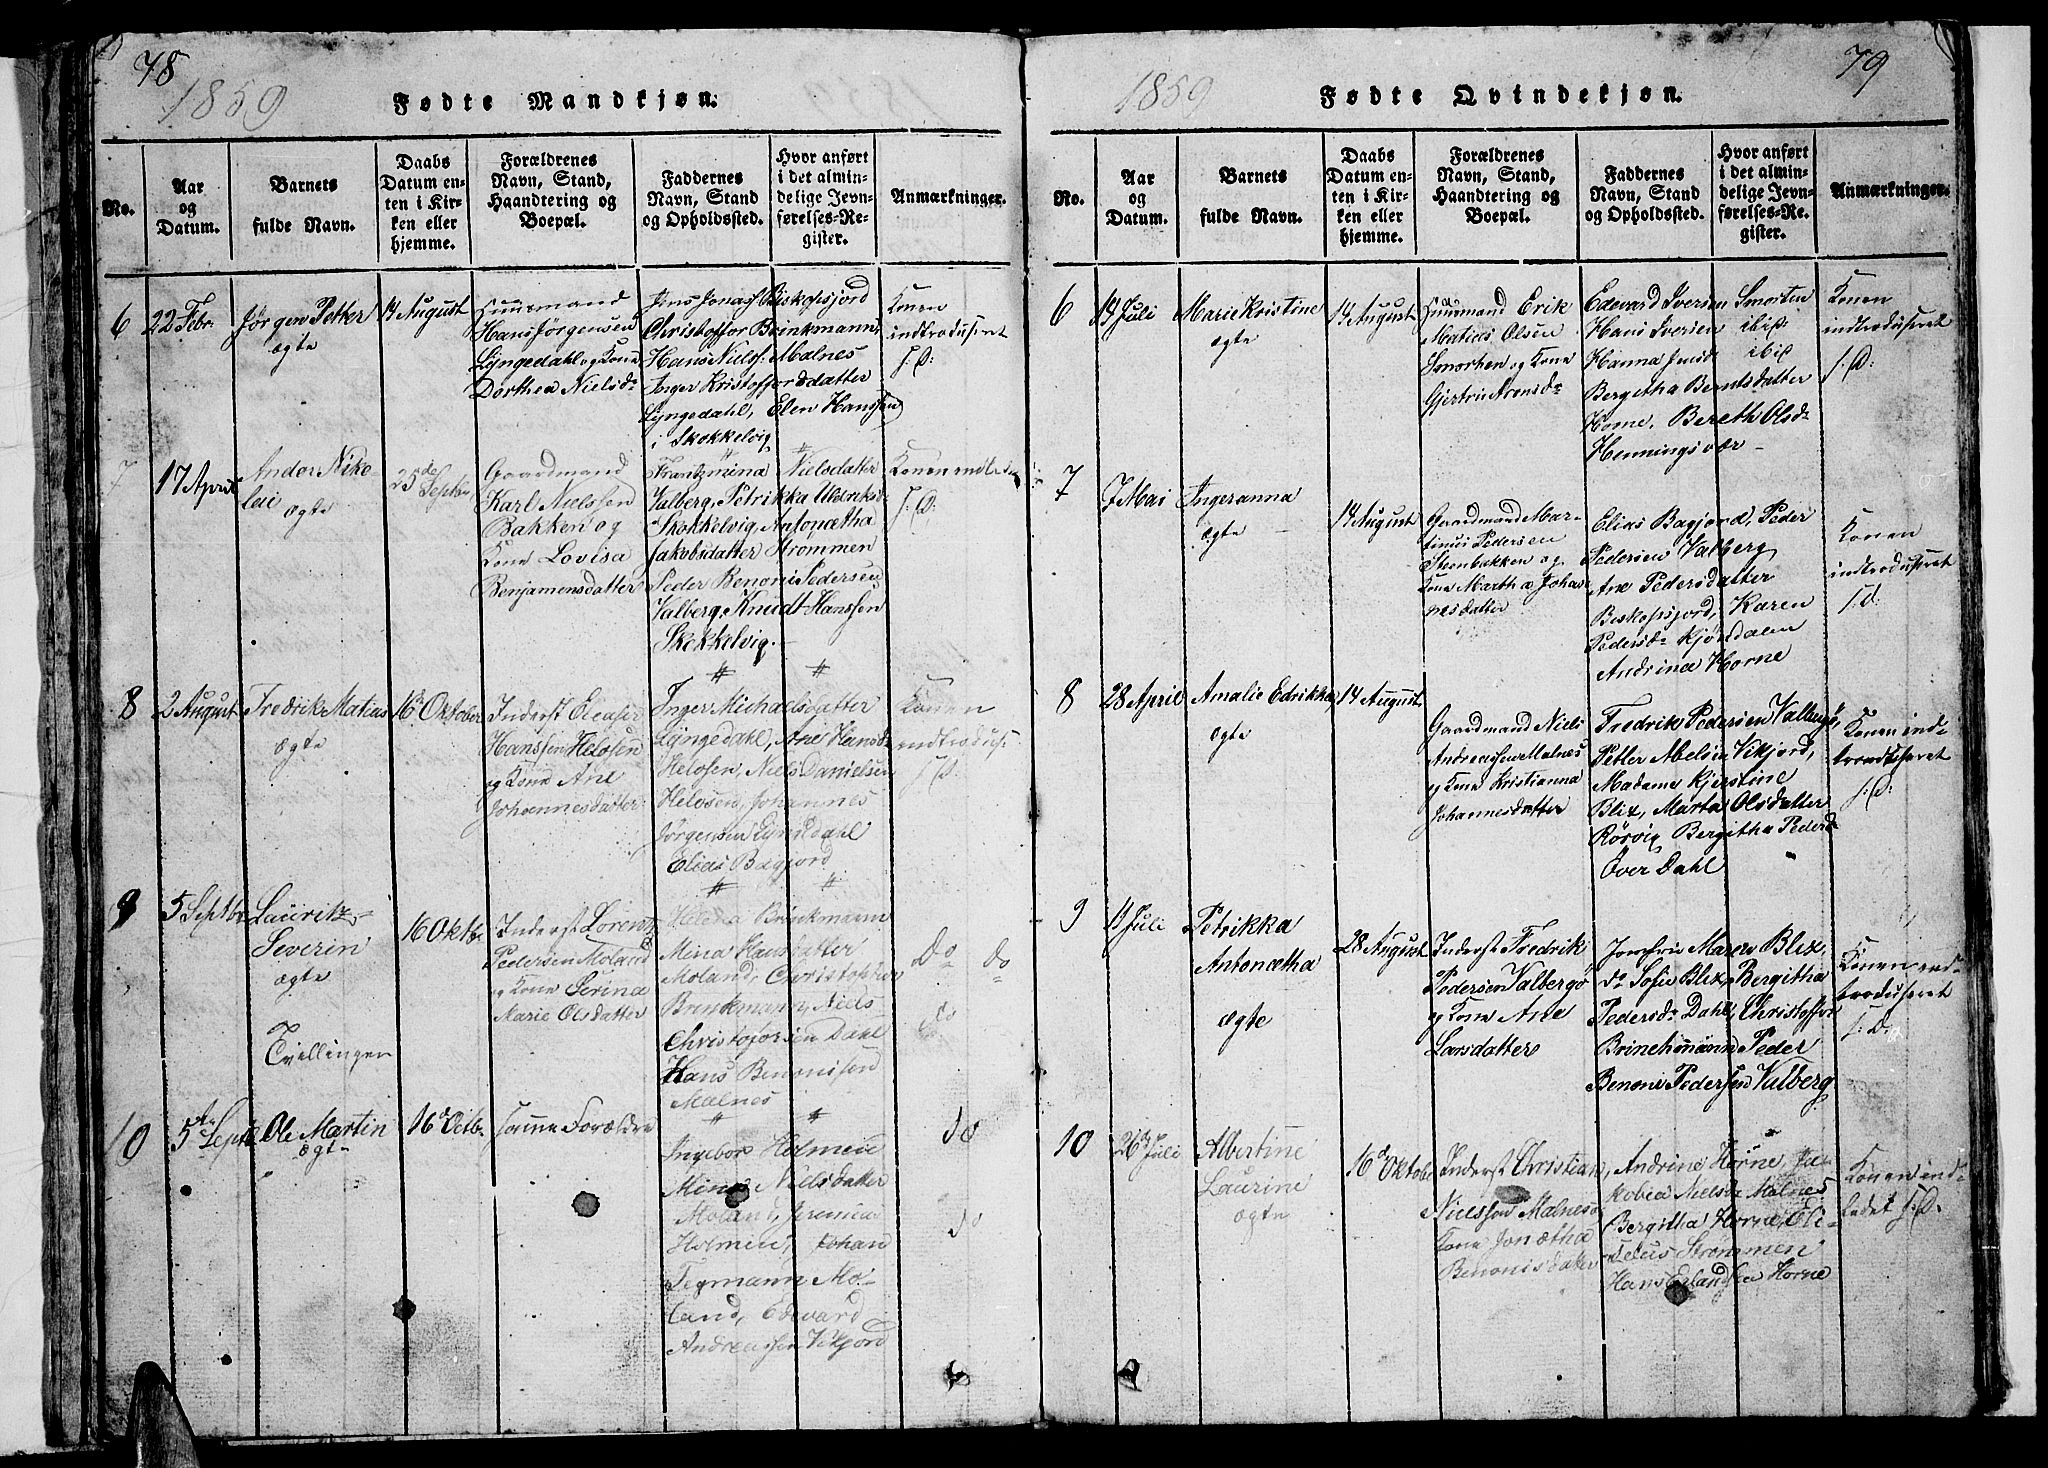 78
1859
Fødte Mandkjøn.
No.
Aar
og
Datum.
Barnets
fulde Navn.
Daabs
Datum en-
ten i Kir-
ken eller
hjemme.
Forældrenes
Navn, Stand,
Haandtering og
Boepæl.
Faddernes
Navn, Stand
og Opholdssted.
Hvor anført
i det almin-
delige Jevn-
førelses-Re-
gister.
Anmærkninger.
6
22 Febr.
Jørgen Petter
ægte
14 August
Huusmand
Hans Jørgensen
Lyngedahl og Kone
Dorthea Nielsdr
Jens Jonas Biskopsjord
Christoffor Brinkmann,
Hans Nielss. Malnes
Inger Kristoffordsdatter
Lyngedahl, Elen Hanssen
i Skokkelvig
Konen
indtroduseret
s. D:
7
17 April
Andor Niko-
lei
ægte
25de Septbr
Gaardmand
Karl Nielssen
Bakken og
Kone Lovisa
Benjamensdatter
Frantzmina Nielsdatter
Valberg, Petrikka Uldriksd
Skokkelvig, Antonætha
Jakobsdatter Strømmen
Peder Benoni Pedersen
Valberg, Knudt Hanssen
Skokkelvig.
Konen indledet
s: D:
8
2 August
Fredrik Matias
ægte
16 Oktober
Inderst Eleaser
Hanssen Helosen
og Kone Ane
Johannesdatter
Inger Michaelsdatter
Lyngedahl, Ane Hansdr
Helosen, Niels Danielsen
Helosen, Johannes
Jørgensen Lyngdahl
Elias Bagjord
Konen
indtrodus:
s D:
9
5 Septbr
Lauritz
Severin
ægte
Tvillinger
16 Oktbr
Inderst Lorentz
Pedersen Moland
og Kone Serina
Marie Olsdatter
Helena Brinkmann
Mina Hansdatter
Moland, Christopher
Brinkmann, Niels
Christofersen Dahl
Hans Benonisen
Malnes
Do do
do
10
5te Septbr
Ole Martin
ægte
16 Octbr
samme Forældre
Ingebor Holmen
Mina Nielsdatter
Moland, Jeremias
Holmen, Johan
Tegmann Mo-
land, Edevard
Andreassen Vikjord
do
do
79
1859
Fødte Qvindekjøn.
No.
Aar
og
Datum.
Barnets
fulde Navn.
Daabs
Datum en-
ten i Kir-
ken eller
hjemme.
Forældrenes
Navn, Stand,
Haandtering og
Boepæl.
Faddernes
Navn, Stand
og Opholdssted.
Hvor anført
i det almin-
delige Jevn-
førelses-Re-
gister.
Anmærkninger.
6
19 Juli
Marie Kristine
ægte
14 August
Huusmand Erik
Matias Olsen
Smorten og Kone
Gjertru Aronsdr
Edevard Iversen Smorten
Hans Iversen ibid
Hanna Jensd ibid
Bergitha Berntsdatter
Horne, Bereth Olsdr
Henningsvær
Konen
indtroduseret
s. D:
7
7 Mai
Ingeranna
ægte
14 August
Gaardmand Mar-
tinus Pedersen
Steenbakken og
Kone Martha Johan-
nesdatter
Elias Bagjord, Peder
Pedersen Valberg
Ane Pedersdatter
Biskopsjord, Karen
Pedersdr Kjøndalen
Andrina Horne
Konen
indtroduseret
s. d:
8
28 April
Amalie Edrikka
ægte
14 August
Gaardmand Niels
Andreassen Malnes
og Kone Kristianna
Johannesdatter
Fredrik Pedersen Valberg,
Petter Abelsen Vikjord,
Madame Kjerstine
Blix, Marta Olsdatter
Rørvig Bergitha Pedersd
Over Dahl
Konen ind-
troduseret
s: D:
9
11 Juli
Petrikka
Antonætha
ægte
28 August
Inderst Fredrik
Pedersen Valberg
og Kone Ane
Larsdatter
Jomfru Maren Blix,
do Sofie Blix, Bergitha
Pedersdr Dahl, Christoffor
Brinchmann Peder
Benoni Pedersen Valberg
Konen ind-
troduseret
s: D:
10
26 Juli
Albertine
Laurine
ægte
16 Oktober
Inderst Christian
Nielssen Malnes og
Kone Jonætha
Benonisdatter
Andrine Horne, Ja-
kobia Nielsdr Malnes
Bergitha Horne, Oli-
Strømmen
Hans Erlandsen Horne
Konen ind-
ledet s: D.